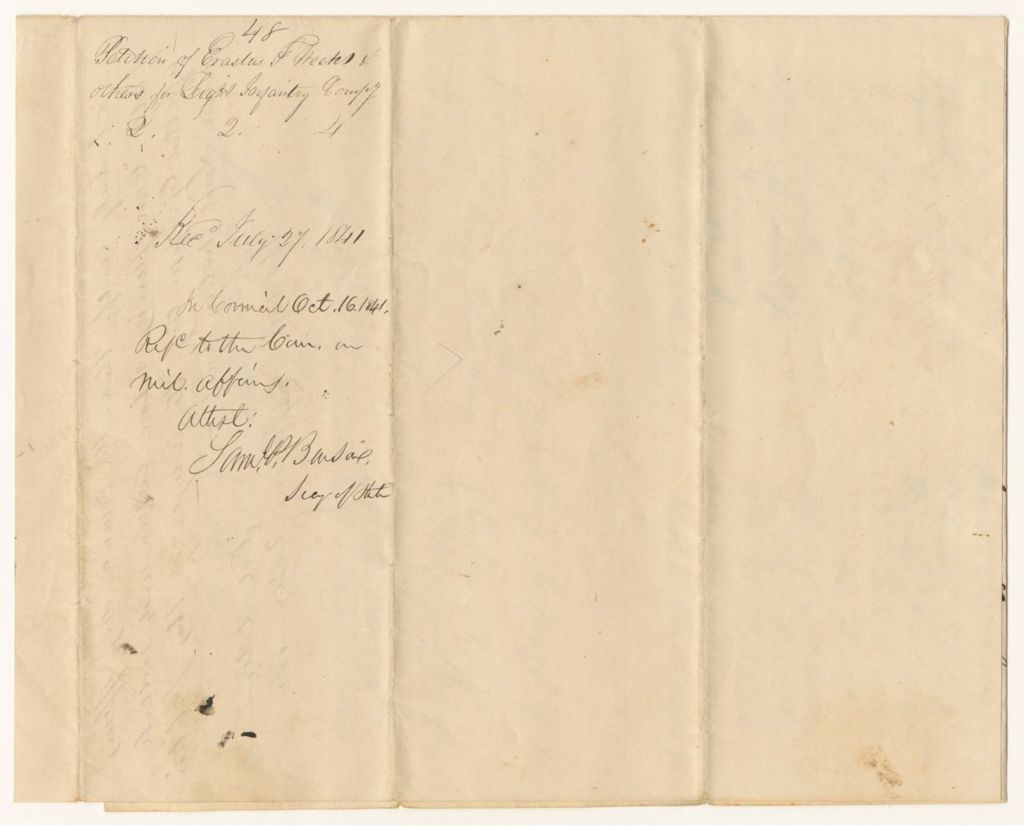 48
Petition of Erastus F Weeks &
others for Light Infantry Compy
2. 2. 4
Recd July 27. 1841
In Council Oct. 16. 1841.
Refd to the Com. on
Mil. affairs.
Attest:
Saml. P. Benson,
Secy of State